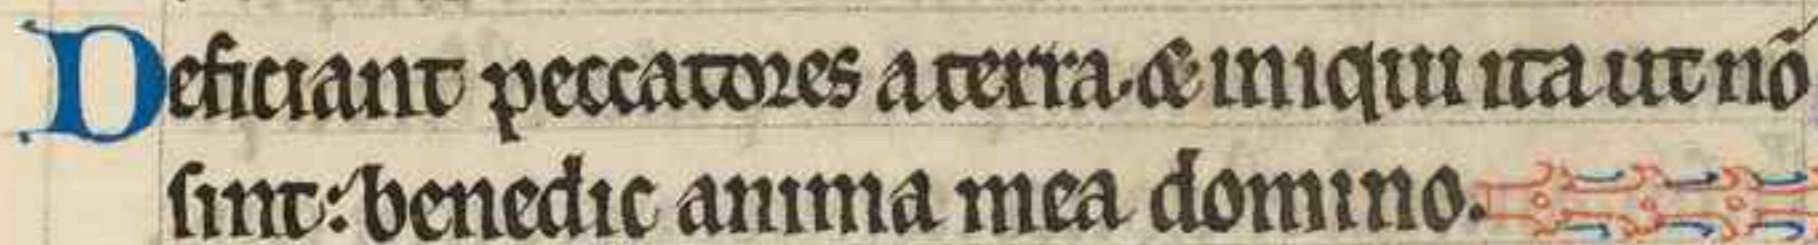 Deficiant peccatores a terra. & iniqui ita ut nō
sint: benedic anima mea domino.